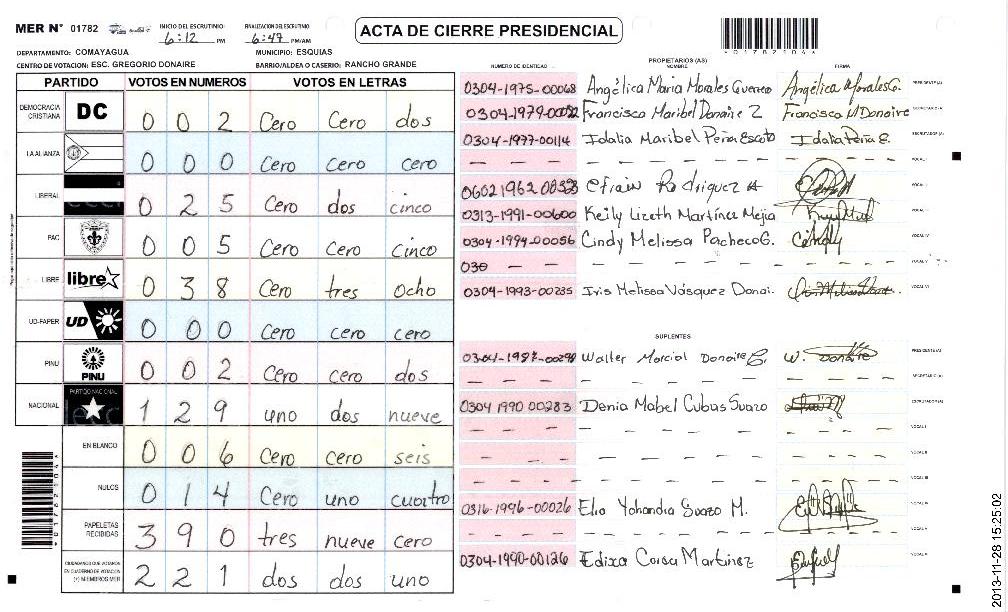 MER N° 01782
INICIO DEL ESCRUTINIO
6:12 PM
FINALIZACION DEL ESCRUTINIO
6:47 PM/AM
ACTA DE CIERRE PRESIDENCIAL
*01782104*
DEPARTAMENTO: COMAYAGUA
MUNICIPIO: ESQUIAS
CENTRO DE VOTACION: ESC. GREGORIO DONAIRE
BARRIO/ALDEA O CASERIO: RANCHO GRANDE
PARTIDO VOTOS EN NUMEROS VOTOS EN LETRAS
DEMOCRACIA CRISTIANA DC 0 0 2 Cero Cero dos
LA ALIANZA 0 0 0 Cero cero cero
LIBERAL 0 2 5 Cero dos cinco
PAC 0 0 5 Cero Cero cinco
LIBRE libre 0 3 8 Cero tres ocho
UD-FAPER UD 0 0 0 Cero cero cero
PINU PINU 0 0 2 Cero cero dos
NACIONAL PARTIDO NACIONAL 1 2 9 uno dos nueve
EN BLANCO 0 0 6 Cero cero seis
NULOS 0 1 4 Cero uno cuatro
PAPELETAS RECIBIDAS 3 9 0 tres nueve cero
CIUDADANOS QUE VOTARON EN CUADERNO DE VOTACION (+) MIEMBROS MER 2 2 1 dos dos uno
PROPIETARIOS (AS)
NUMERO DE IDENTIDAD NOMBRE FIRMA
0304-1975-00068 Angélica Maria Morales Angélica Morales G. PRESIDENTE(A)
0304-1979- Francisca Maribel Donaire Z Francisca M Donaire SECRETARIO(A)
0304-1977-00114 Idalia Maribel Peña Escoto Idalia Peña E. ESCRUTADOR(A)
— — — — — — — — — VOCAL I
0602 1962 Efrain Rodriquez A VOCAL II
0313-1991-00600 Keily Lizeth Martínez Mejia
0304-1994-00056 Cindy Melissa Pacheco G. Cindy VOCAL IV
030 — — — — — — — — VOCAL V
0304-1993-00235 Iris Melissa Vásquez Donai. VOCAL VI
SUPLENTES
0304-1987- Walter Marcial Donaire W. Donaire PRESIDENTE(A)
— — — — — — — — — SECRETARIO(A)
0304 1990 00283 Denia Mabel Cubas Suazo ESCRUTADOR(A)
— — — — — — — — — VOCAL I
— — — — — — — — — VOCAL II
— — — — — — — — — VOCAL III
0316-1996-00026 Elia Yohandra Suazo M.
— — — — — — — — — VOCAL V
0304-1990-00126 Edixa Martinez
2013-11-28 15:25:02